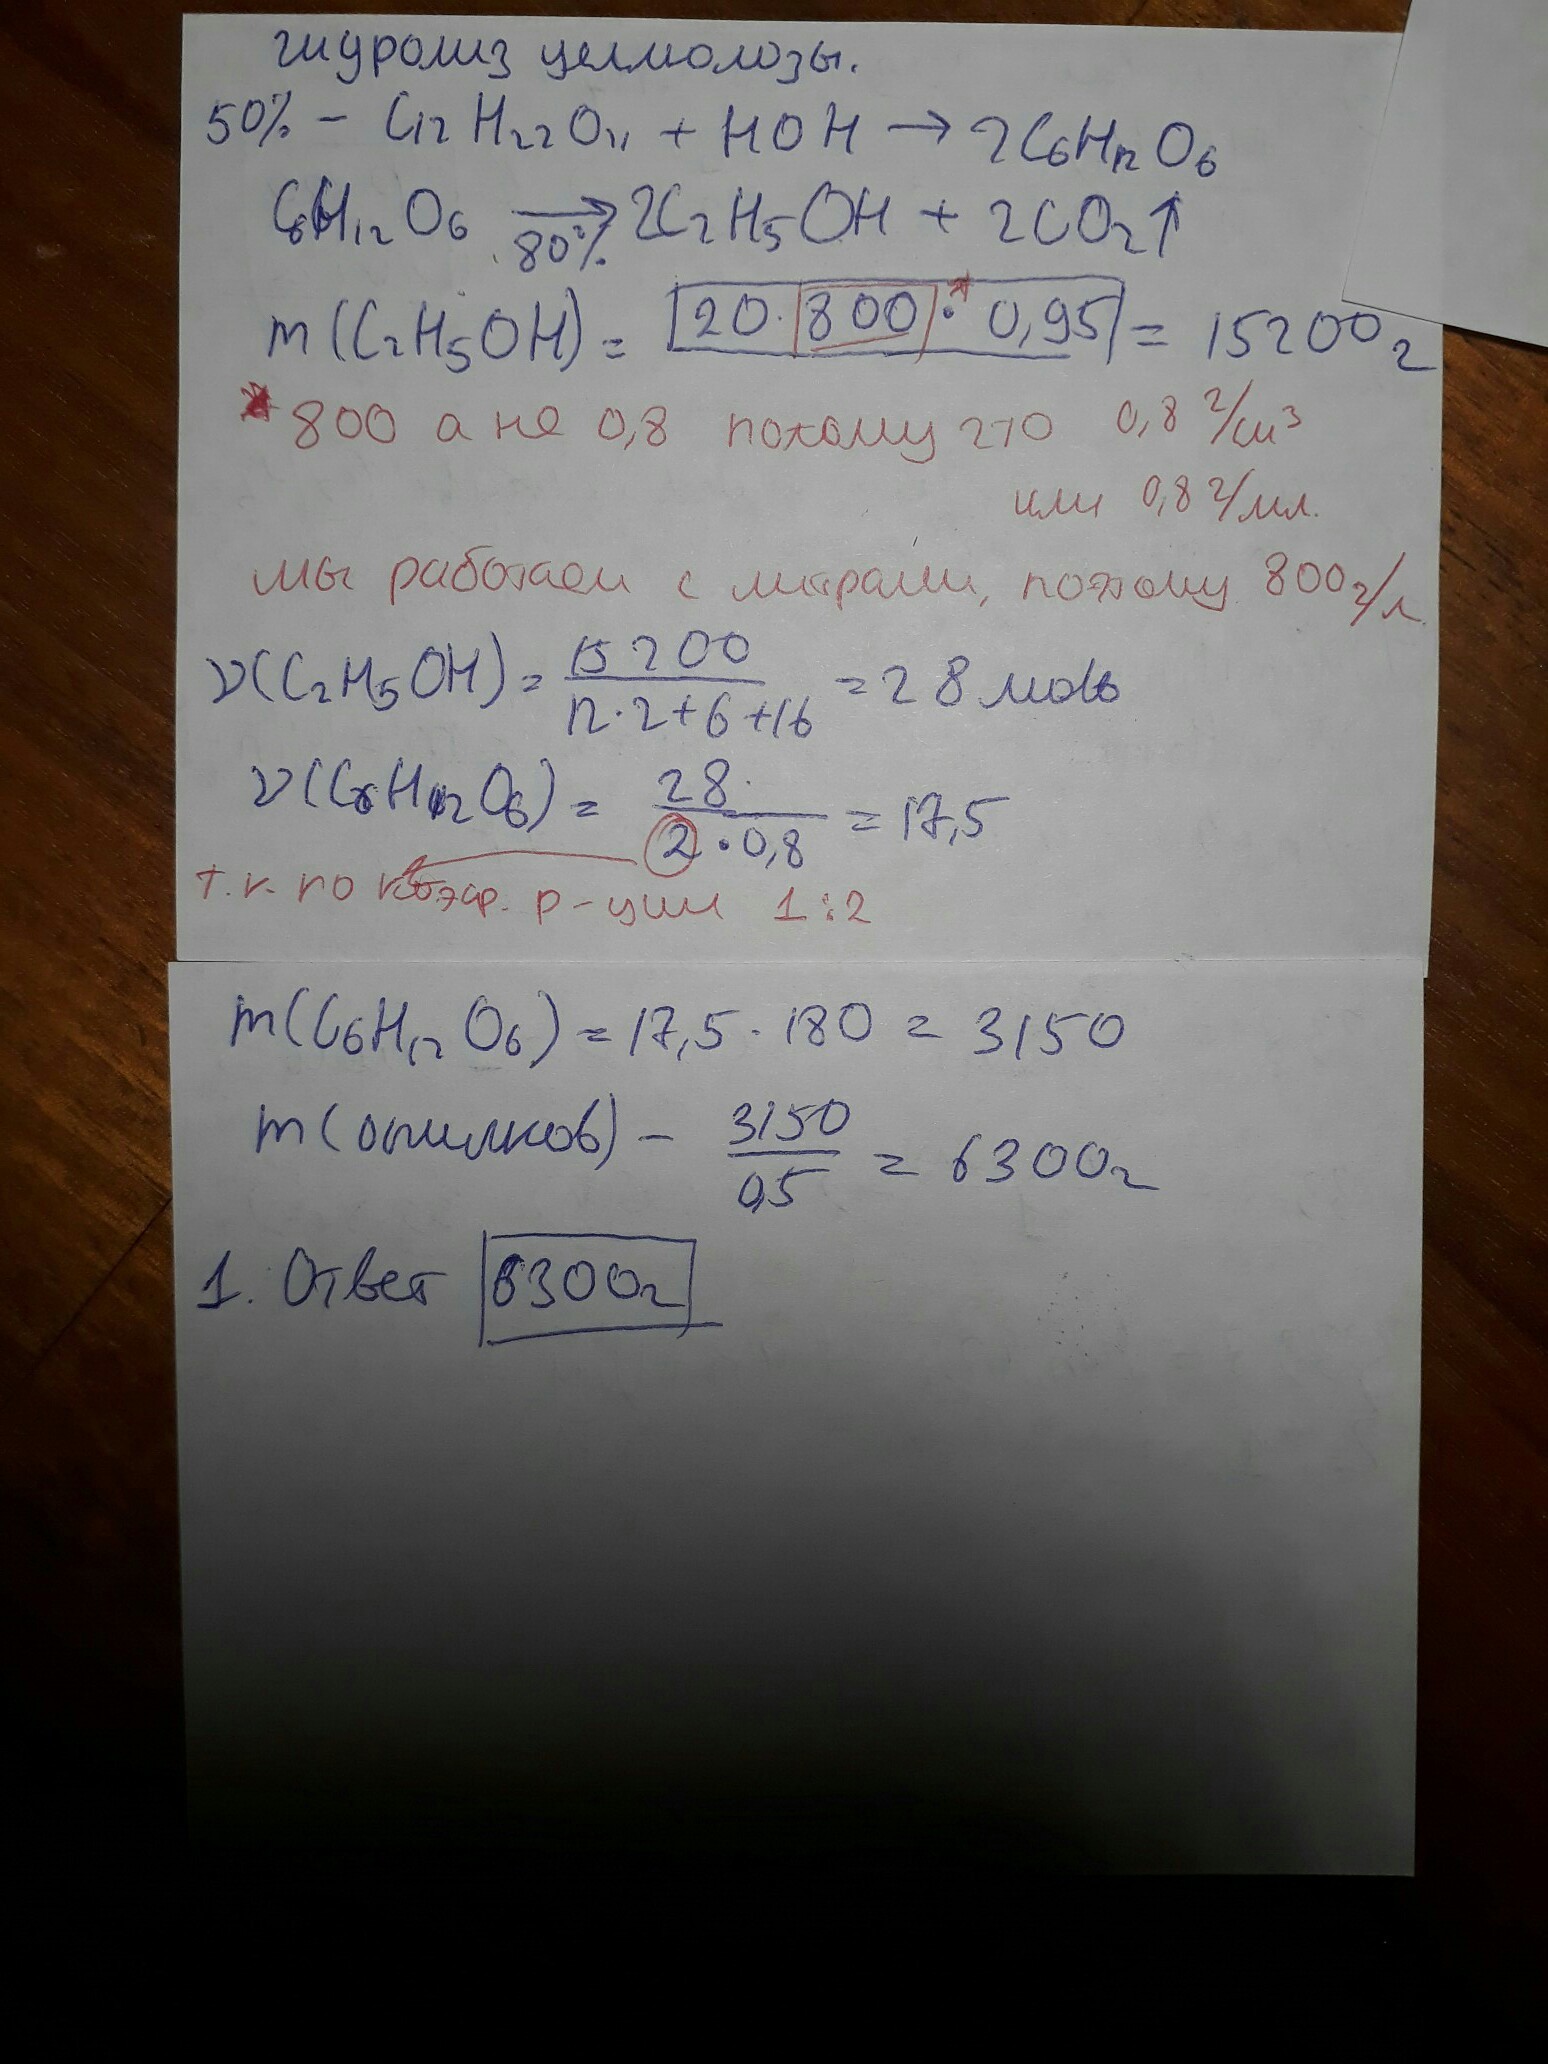 гидролиз целлюлозы.
50% - C₁₂H₂₂O₁₁ + HOH → 2C₆H₁₂O₆
C₆H₁₂O₆ →80% 2C₂H₅OH + 2CO₂↑
m(C₂H₅OH) = 20·800·*0,95 = 15200г
* 800 а не 0,8 потому что 0,8 г/см³
или 0,8 г/мл.
мы работаем с литрами, поэтому 800г/л.
ν(C₂H₅OH) = 15200/12·2+6+16 = 28 моль
ν(C₆H₁₂O₆) = 28/2·0,8 = 17,5
т.к. по коэф. р-ции 1:2
m(C₆H₁₂O₆) = 17,5·180 = 3150
m(опилков) - 3150/0,5 = 6300г
1. Ответ 6300г